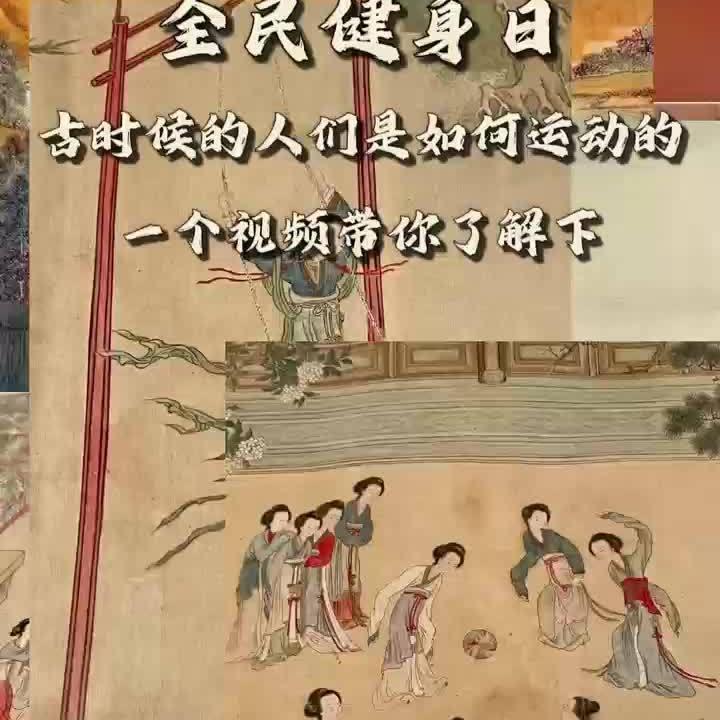 全民健身日
古时候的人们是如何运动的
一个视频带你了解下